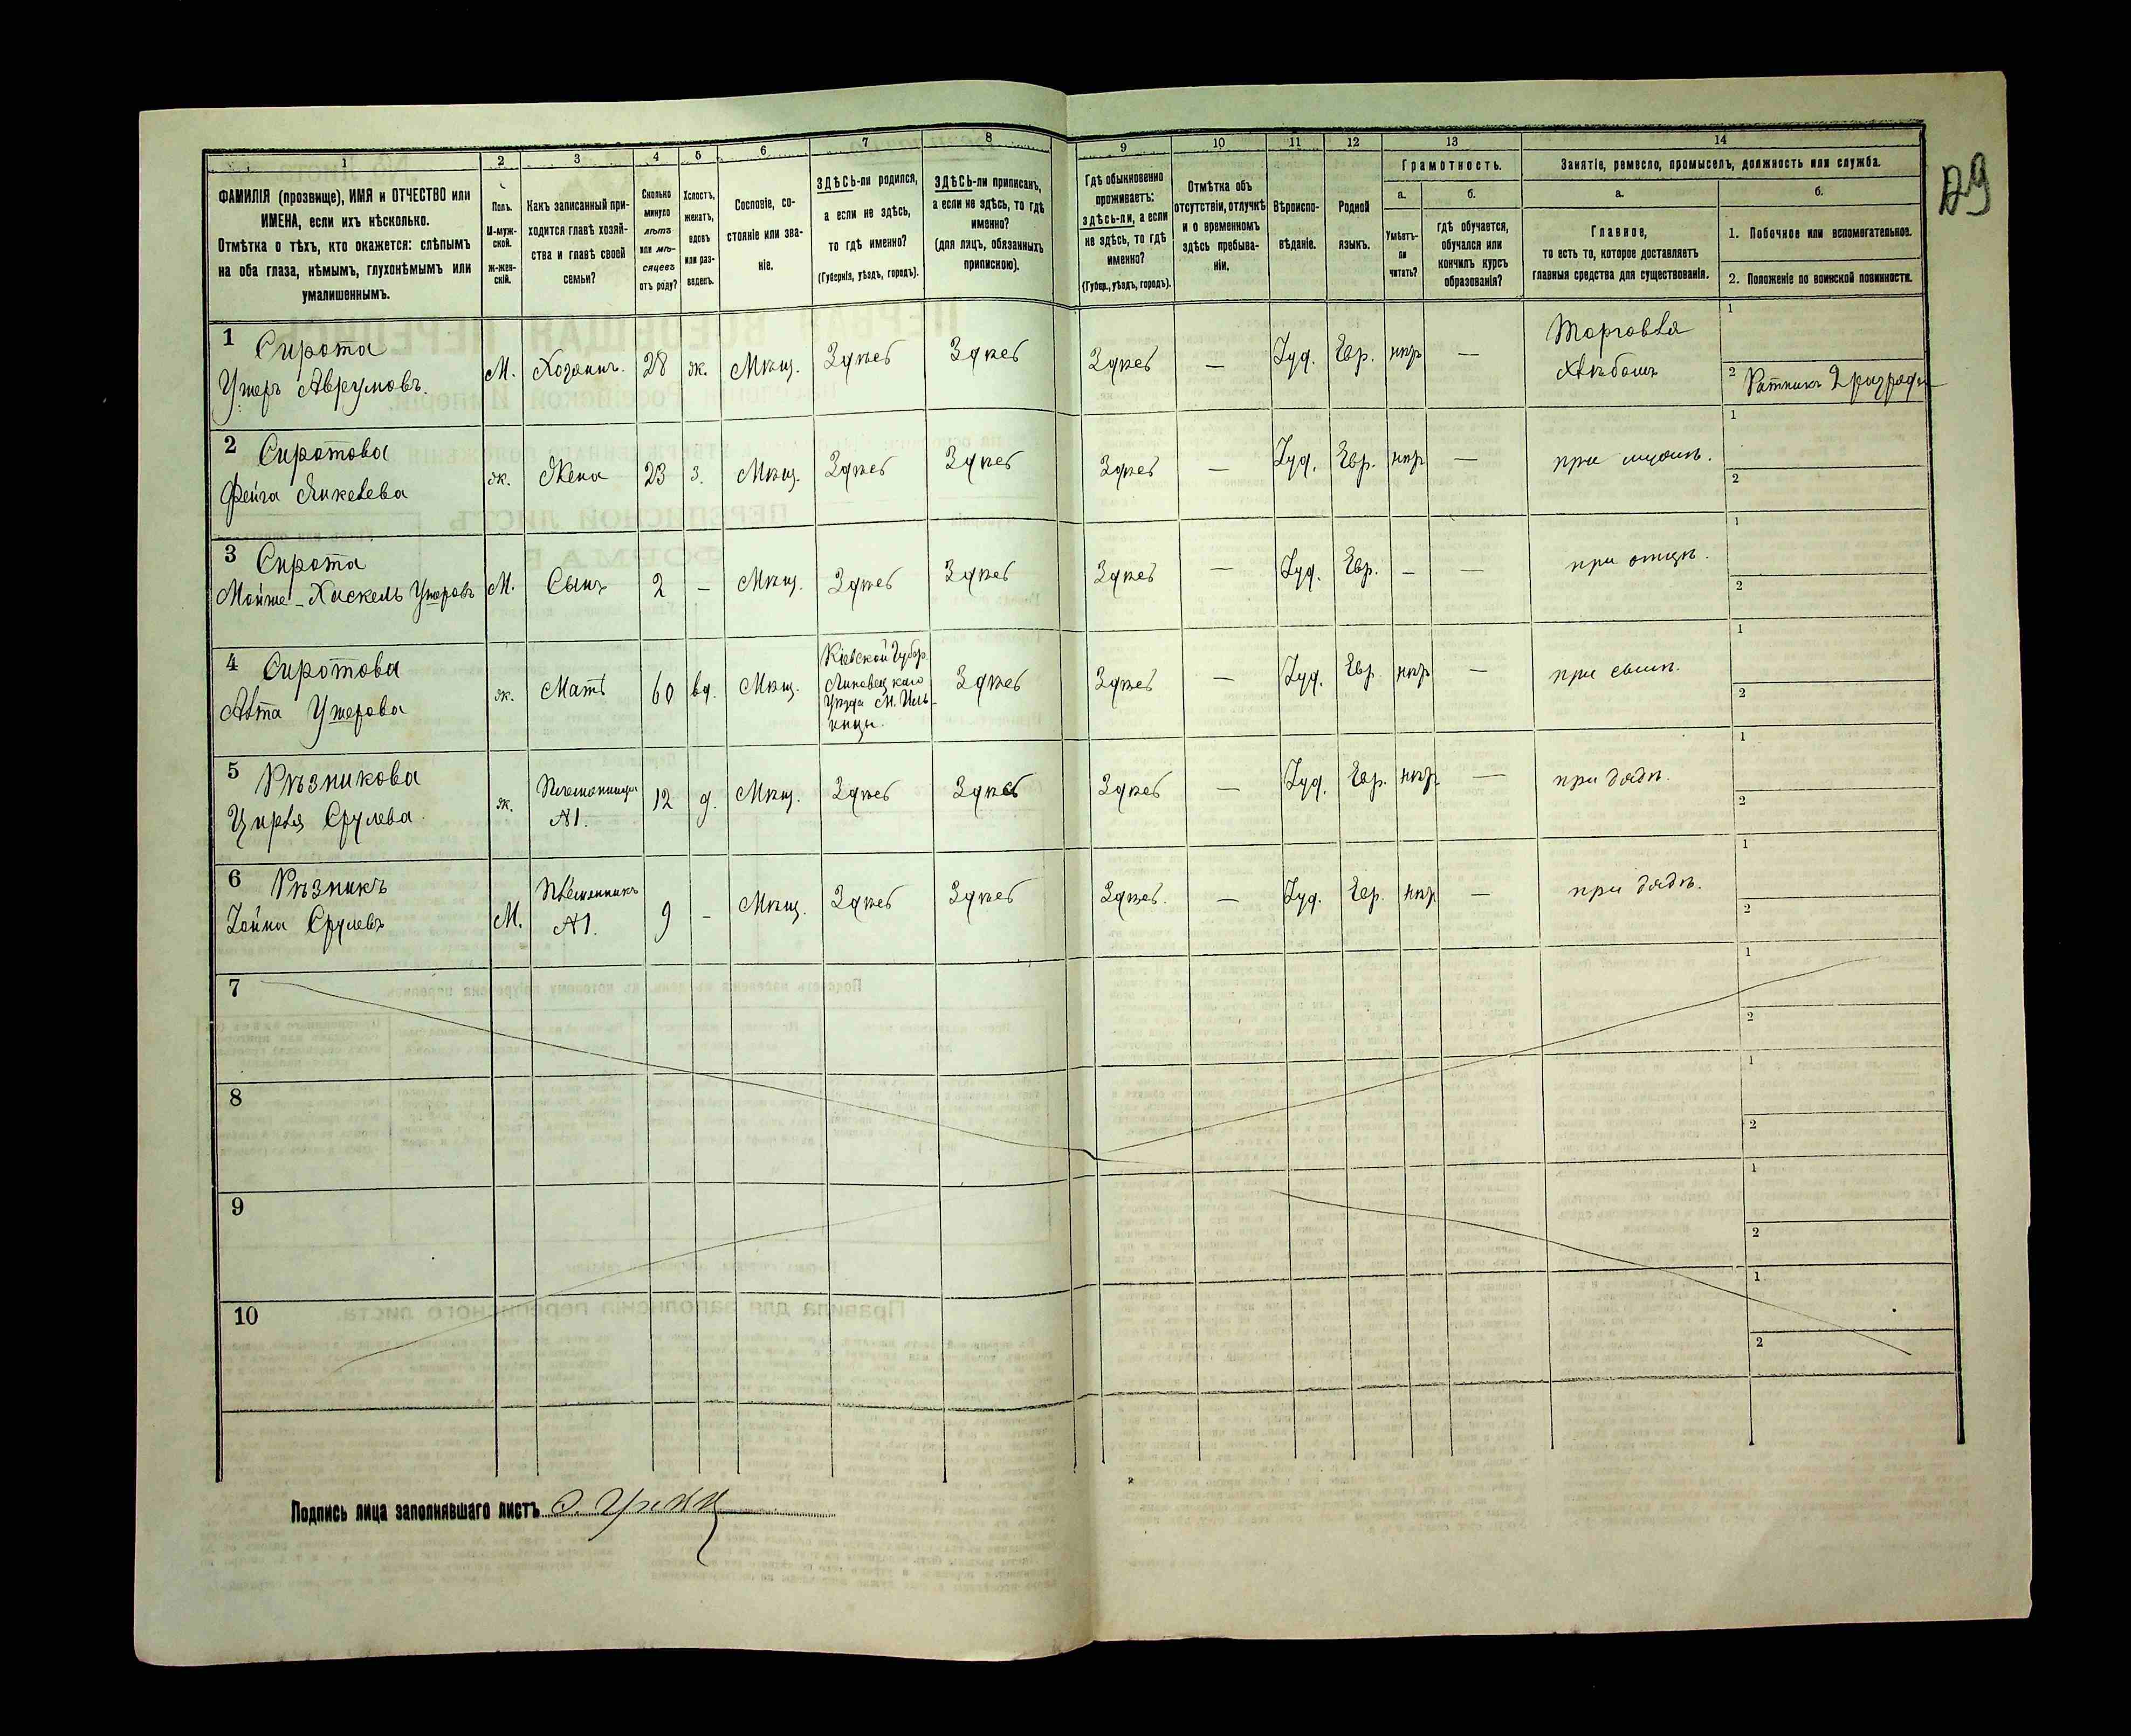 129
1 2 3 4 5 6 7 8 9 10 11 12 13 14
ФАМИЛІЯ (прозвище), ИМЯ и ОТЧЕСТВО или
ИМЕНА, если ихъ нѣсколько.
Отмѣтка о тѣхъ, кто окажется: слѣпымъ
на оба глаза, нѣмымъ, глухонѣмымъ или
умалишеннымъ.
Полъ.
М-муж-
ской.
Ж-жен-
скій.
Какъ записанный при-
ходится главѣ хозяй-
ства и главѣ своей
семьи?
Сколько
минуло
лѣтъ
или мѣ-
сяцевъ
отъ роду?
Холостъ,
женатъ,
вдовъ
или раз-
веденъ.
Сословіе, со-
стояніе или зва-
ніе.
ЗДѢСЬ-ли родился,
а если не здѣсь,
то гдѣ именно?
(Губернія, уѣздъ, городъ).
ЗДѢСЬ-ли приписанъ,
а если не здѣсь, то гдѣ
именно?
(для лицъ, обязанныхъ
припискою).
Гдѣ обыкновенно
проживаетъ:
здѣсь-ли, а если
не здѣсь, то гдѣ
именно?
(Губер., уѣздъ, городъ).
Отмѣтка объ
отсутствіи, отлучкѣ
и о временномъ
здѣсь пребыва-
ніи.
Вѣроиспо-
вѣданіе.
Родной
языкъ.
Грамотность.
а.
Умѣетъ-
ли
читать?
б.
гдѣ обучается,
обучался или
кончилъ курсъ
образованія?
Занятіе, ремесло, промыселъ, должность или служба.
а.
Главное,
то есть то, которое доставляетъ
главныя средства для существованія.
б.
1. Побочное или вспомогательное.
2. Положеніе по воинской повинности.
1 Сирота
Ушеръ Аврумовъ. М. Хозяинъ. 28 ж. Мѣщ. Здѣсь Здѣсь Здѣсь — Іуд. Евр. нѣтъ — Торговля
хлѣбомъ
1
2 Ратникъ 2 разряда
2 Сиротова
Фейга Янкелева ж. Жена 23 з. Мѣщ. Здѣсь Здѣсь Здѣсь — Іуд. Евр. нѣтъ — при мужѣ.
1
2
3 Сирота
Мойше-Хаскель Ушеровъ М. Сынъ 2 — Мѣщ. Здѣсь Здѣсь Здѣсь — Іуд. Евр. — — при отцѣ.
1
2
4 Сиротова
Ушерова ж. Мать 60 вд. Мѣщ. Кіевской Губер.
Липовецкаго
Уѣзда М. Иль-
инцы. Здѣсь Здѣсь — Іуд. Евр. нѣтъ — при сынѣ.
1
2
5 Рѣзникова
Цирля Срулева. ж. Племянница
№1. 12 д. Мѣщ. Здѣсь Здѣсь Здѣсь — Іуд. Евр. нѣтъ — при дядѣ.
1
2
6 Рѣзникъ
Іойна Срулевъ М. Племянникъ
№1. 9 — Мѣщ. Здѣсь Здѣсь Здѣсь. — Іуд. Евр. нѣтъ — при дядѣ.
1
2
7
1
2
8
1
2
9
1
2
10
1
2
Подпись лица заполнявшаго листъ